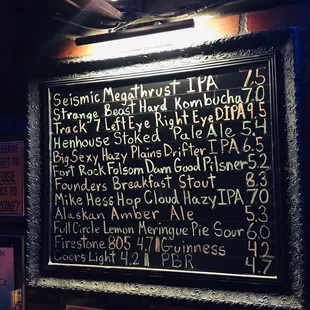 Seismic Megathrust IPA 7.5
Strange Beast Hard Kombucha 7.0
Track 7 Left Eye Right Eye DIPA 9.5
Henhouse Stoked Pale Ale 5.4
Big Sexy Hazy Plains Drifter IPA 6.5
Fort Rock Folsom Dam Good Pilsner 5.2
Founders Breakfast Stout 8.3
Mike Hess Hop Cloud Hazy IPA 7.0
Alaskan Amber Ale 5.3
Full Circle Lemon Meringue Pie Sour 6.0
Firestone 805 4.7 Guinness 4.2
Coors Light 4.2 PBR 4.7
REFUSE
SERVICE
TO
ANYONE!